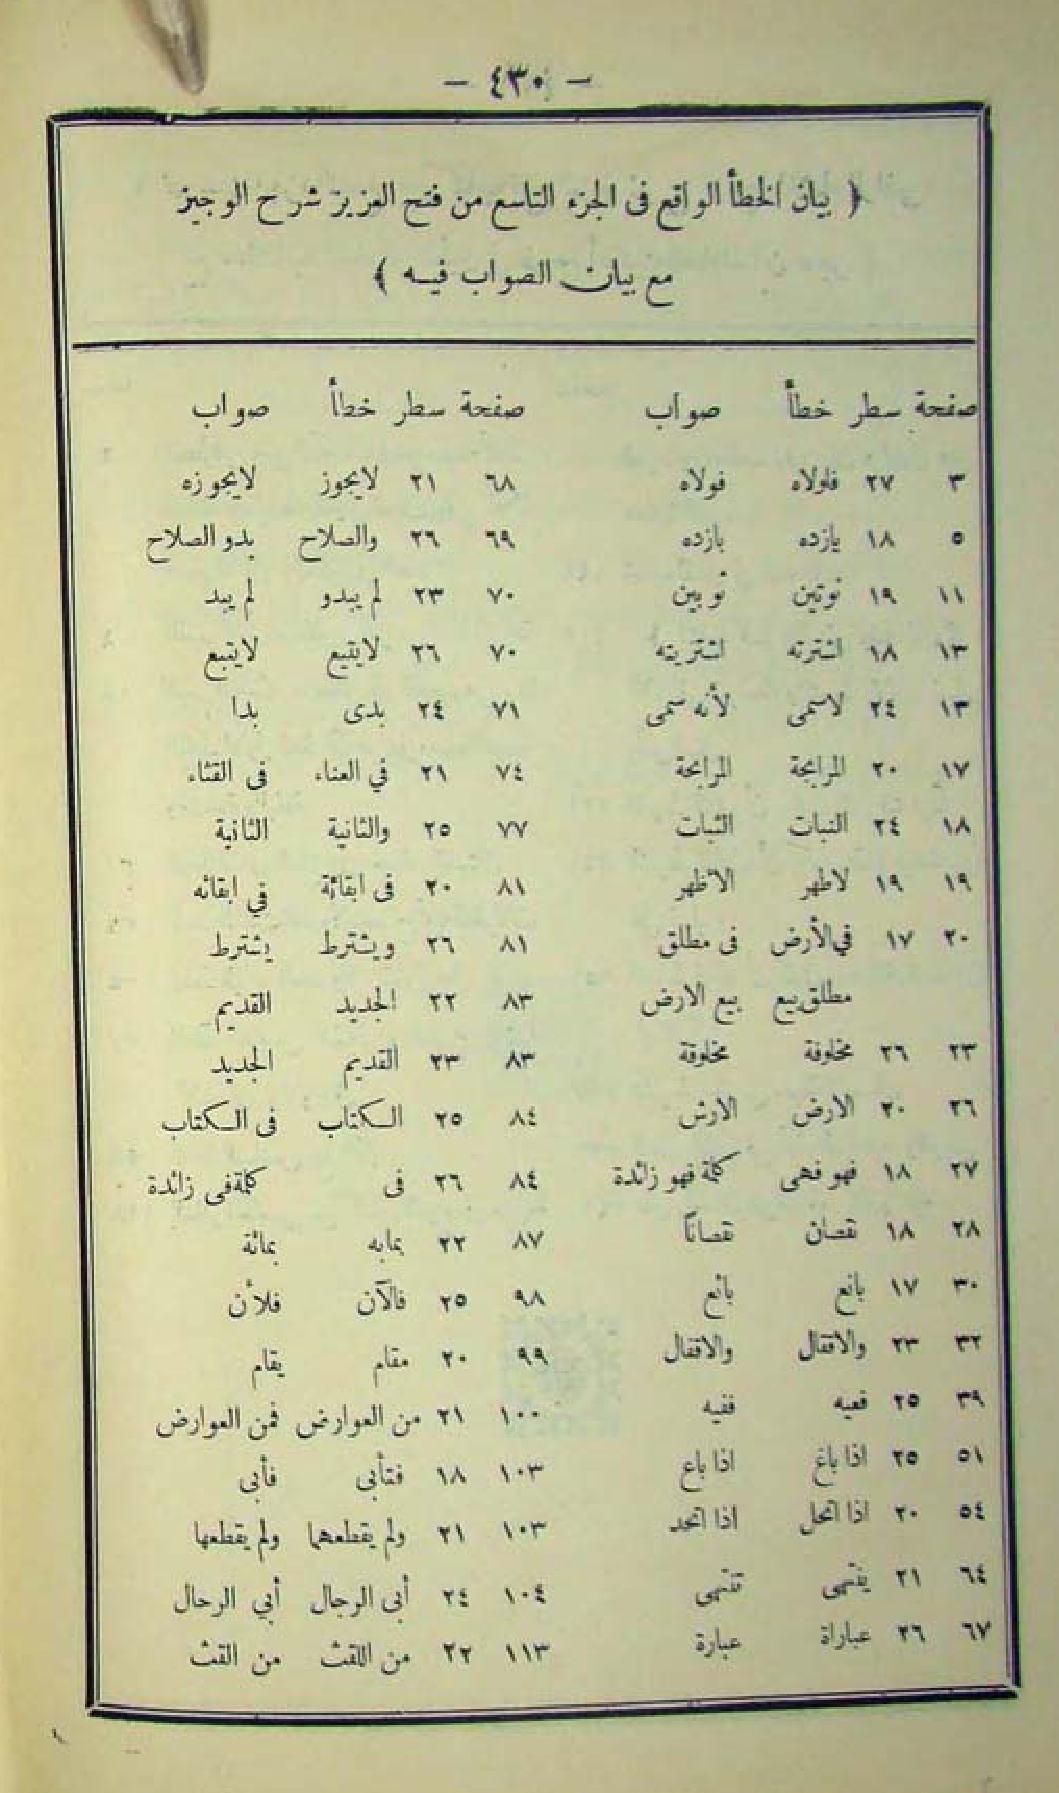 — ٤٣٠ —
﴿ بيان الخطأ الواقع فى الجزء التاسع من فتح العزيز شرح الوجيز
مع بيان الصواب فيه ﴾
صفحة سطر خطأ صواب
٣ ٢٧ فلولاه فولاه
٥ ١٨ يازده بازده
١١ ١٩ نوتين نوبين
١٣ ١٨ اشترته اشتريته
١٣ ٢٤ لاسمى لأنه سمى
١٧ ٢٠ المرابحة المرابحة
١٨ ٢٤ النبات الثبات
١٩ ١٩ لاطهر الاظهر
٢٠ ١٧ في الأرض فى مطلق
مطلق بيع بيع الارض
٢٣ ٢٦ مخلوفة مخلوقة
٢٦ ٢٠ الارض الارش
٢٧ ١٨ فهو فهى كلمة فهو زائدة
٢٨ ١٨ نقصان نقصانًا
٣٠ ١٧ بانع بائع
٣٢ ٢٣ والاقفال والاقفال
٣٩ ٢٥ فعيه ففيه
٥١ ٢٥ اذا باغ اذا باع
٥٤ ٢٠ اذا اتحل اذا اتحد
٦٤ ٢١ يفتهى تنتهى
٦٧ ٢٦ عباراة عبارة
صفحة سطر خطأ صواب
٦٨ ٢١ لايجوز لايجوزه
٦٩ ٢٦ والصلاح بدو الصلاح
٧٠ ٢٣ لم يبدو لم يبد
٧٠ ٢٦ لايتبع لايتبع
٧١ ٢٤ بدى بدا
٧٤ ٢١ في العناء فى القثاء
٧٧ ٢٥ والثانية الثانية
٨١ ٢٠ فى ابقائة في ابقائه
٨١ ٢٦ ويشترط يشترط
٨٣ ٢٢ الجديد القديم
٨٣ ٢٣ القديم الجديد
٨٤ ٢٥ الكتاب فى الكتاب
٨٤ ٢٦ فى كلمة فى زائدة
٨٧ ٢٢ بمابه بمائة
٩٨ ٢٥ فالآن فلأن
٩٩ ٢٠ مقام يقام
١٠٠ ٢١ من العوارض فمن العوارض
١٠٣ ١٨ فتأبى فأبى
١٠٣ ٢١ ولم يقطعهما ولم يقطعها
١٠٤ ٢٤ أبى الرجال أبي الرحال
١١٣ ٢٢ من اللقث من القث